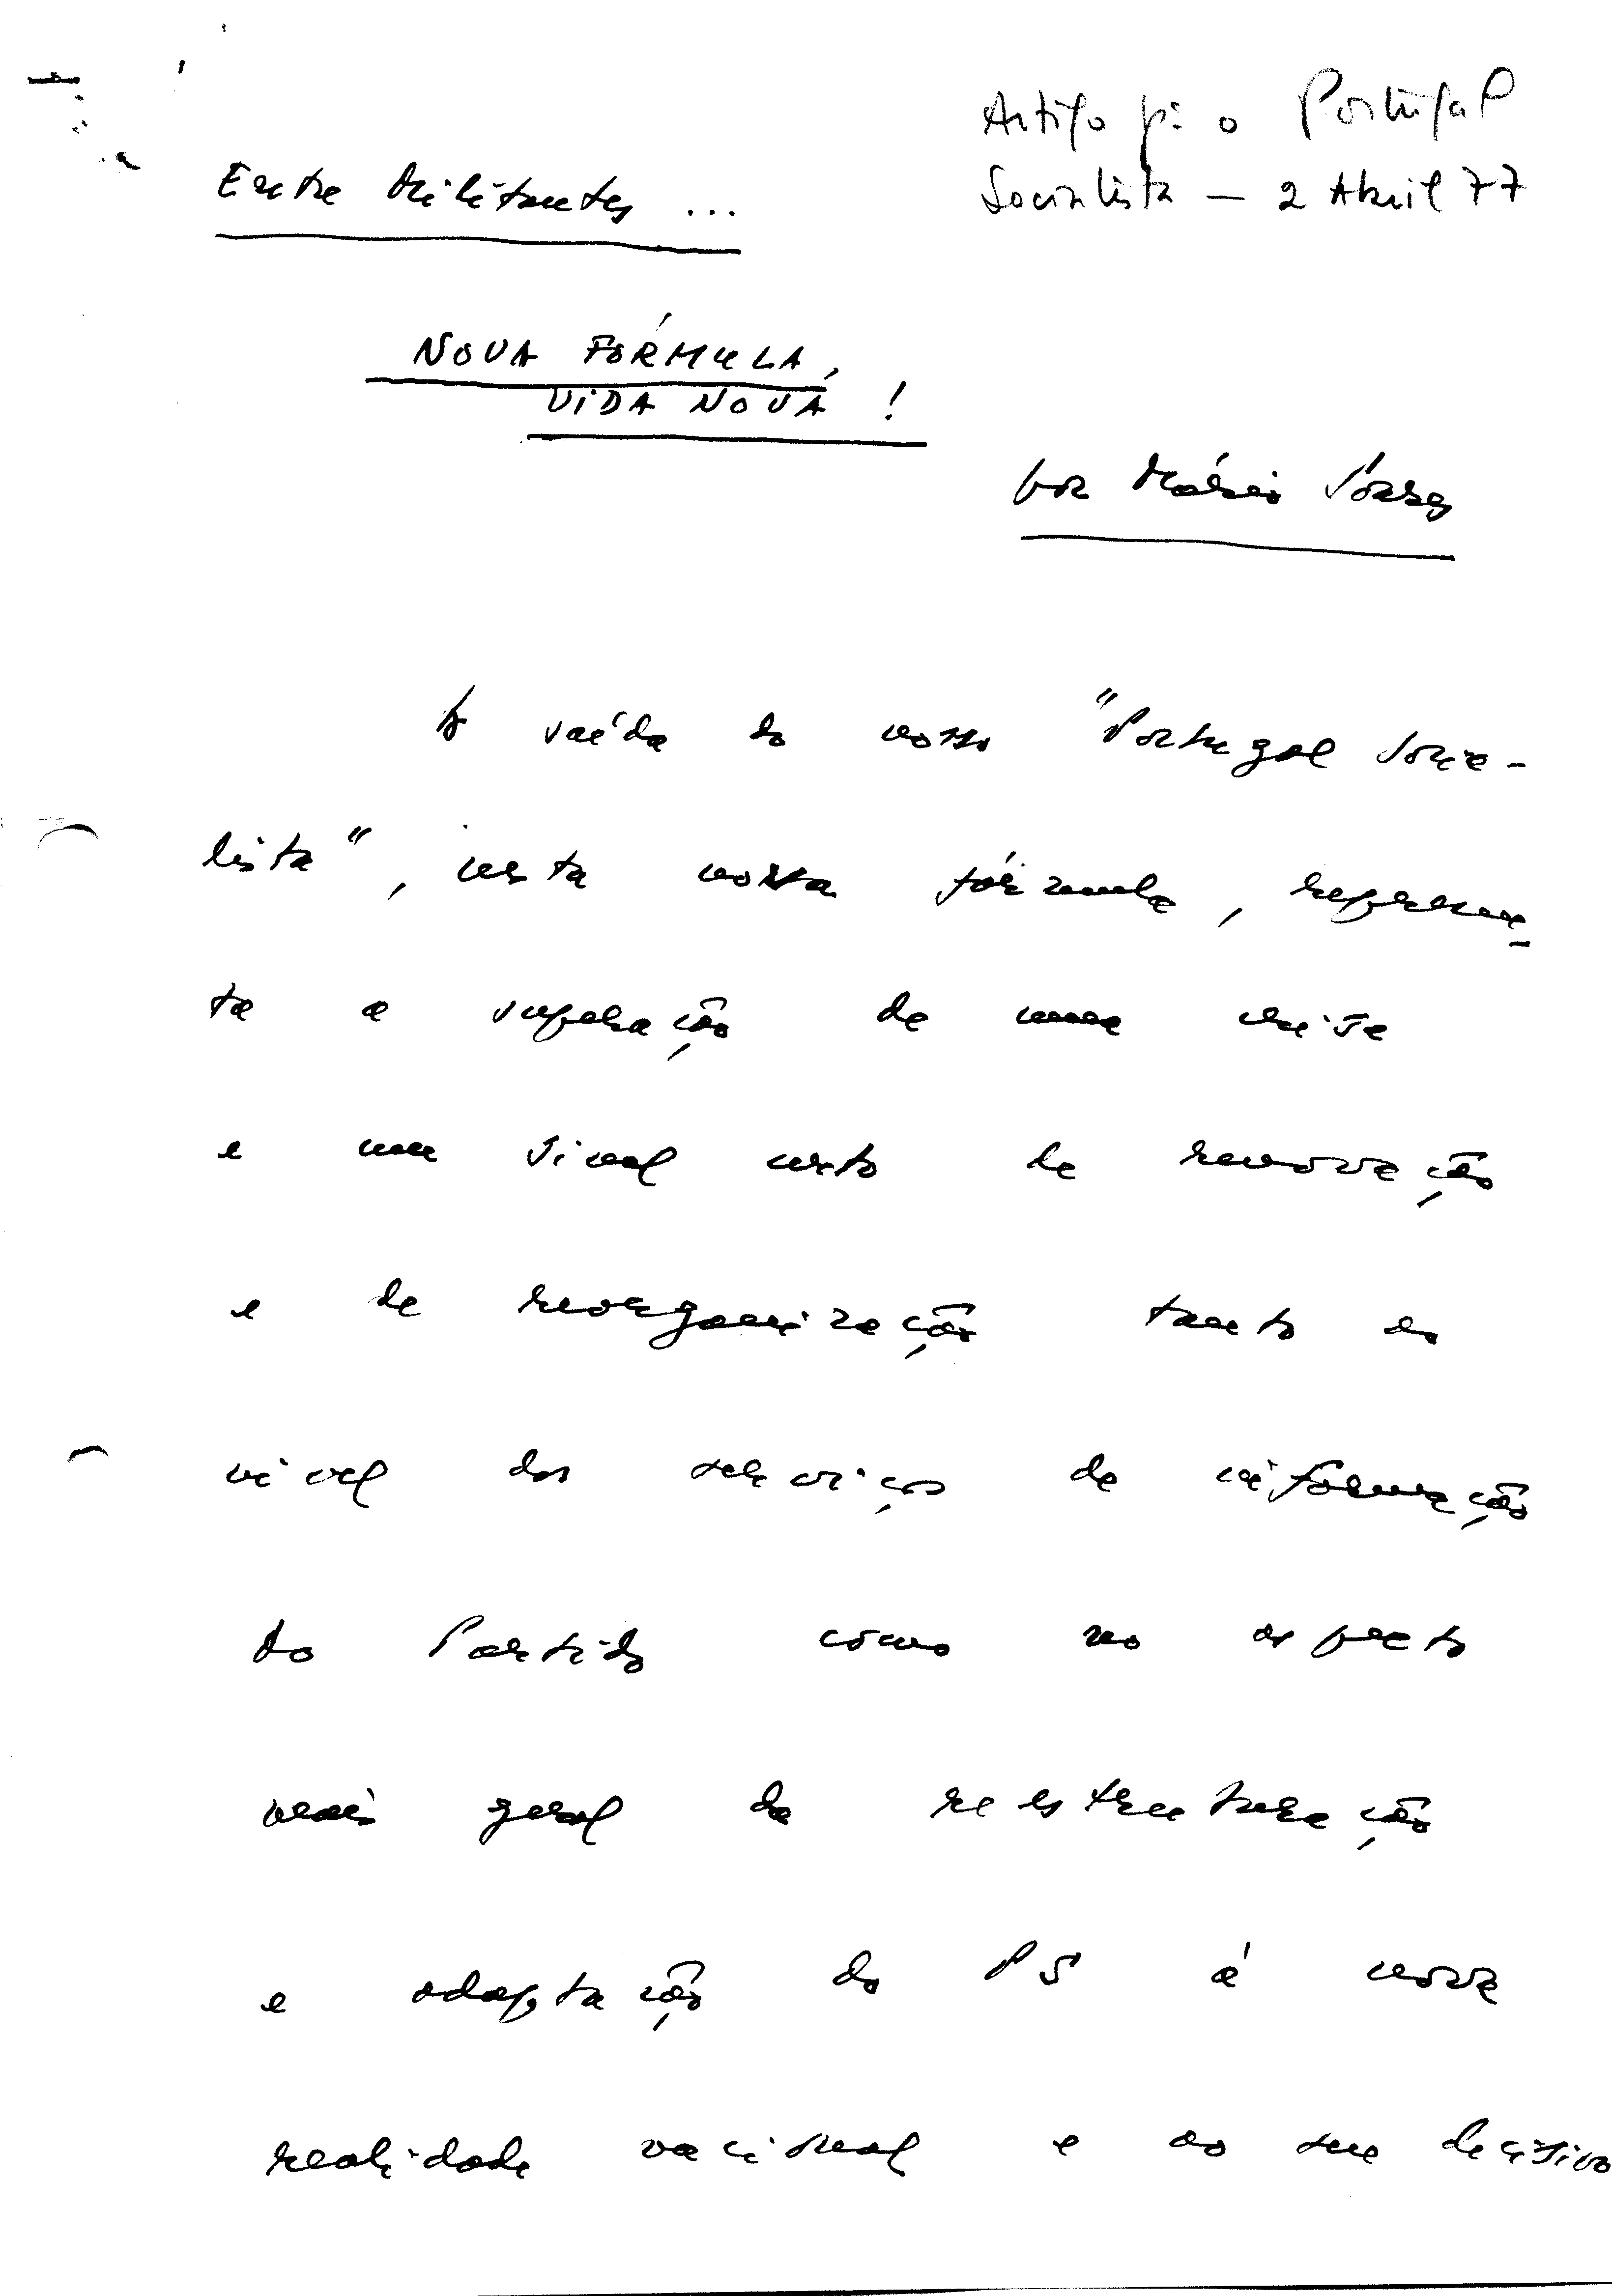 Artigo p: o Portugal
Socialista - 2 Abril 77
Entre Militantes ...
NOVA FÓRMULA,
VIDA NOVA !
por Mário Soares
A saída do nosso "Portugal Socia-
lista", nesta nova fórmula, represen-
ta a superação de uma crise
e um sinal certo de renovação
e de reorganização tanto ao
nível dos serviços de informação
do Partido como no aspecto
mais geral da reestruturação
e adaptação do PS à nova
realidade nacional e ao seu decisivo